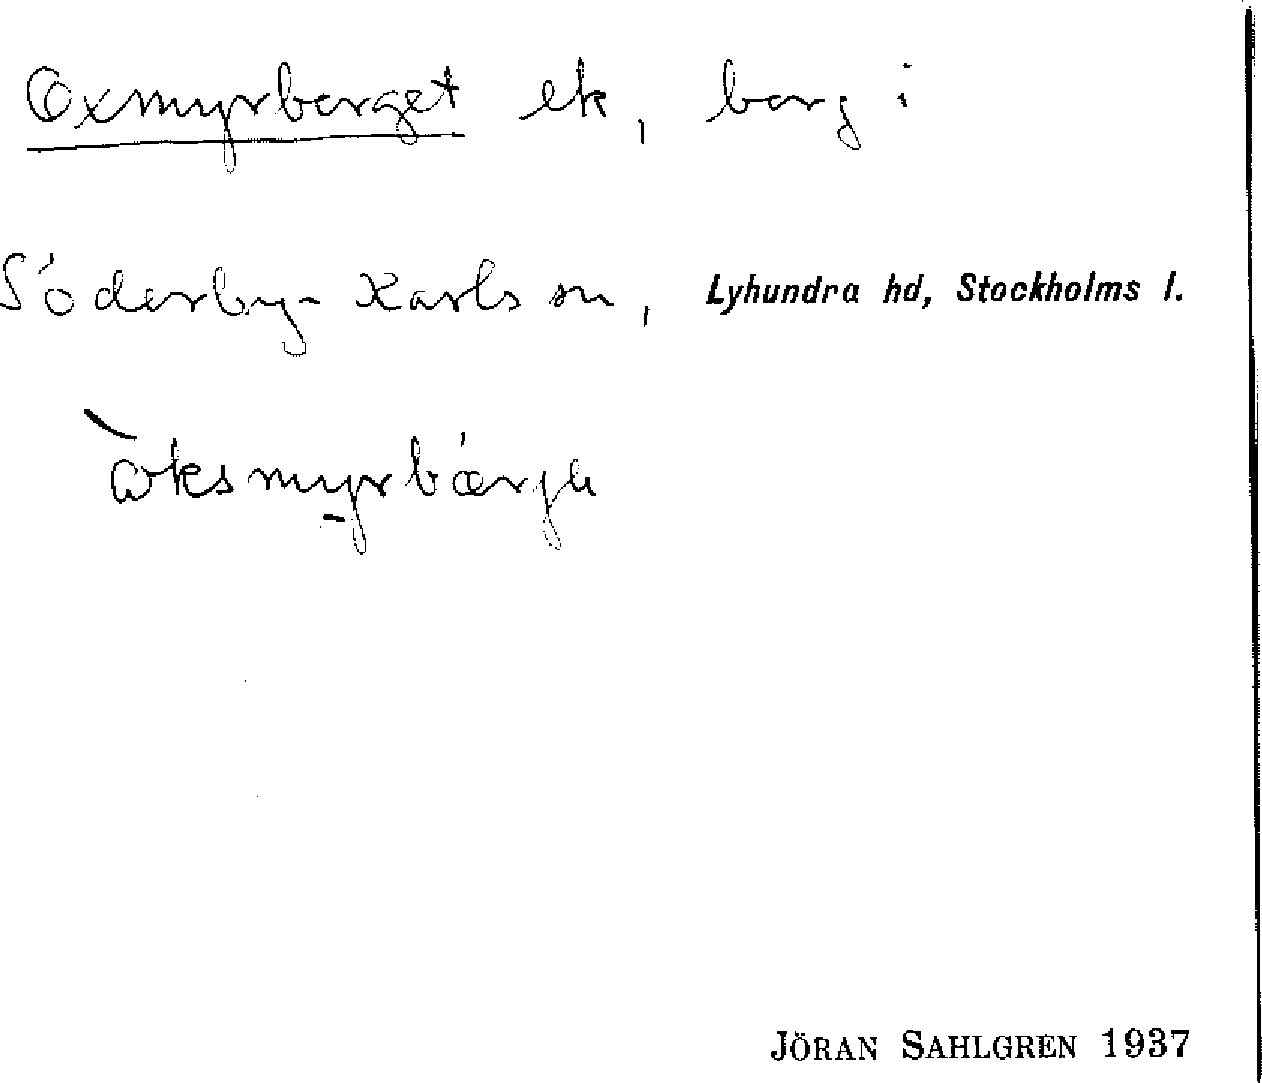 Oxmyrberget ek, berg i
Söderby-Karls sn, Lyhundra hd, Stockholms l.
JÖRAN SAHLGREN 1937